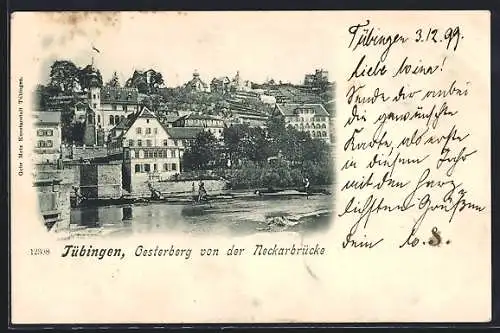 Tübingen 3.12.99.
liebe
Sende dir anbei
die gewünschte
Karte, als erste
in diesem Jahr
mit den herz
lichsten Grüßen
dein
Gebr. Metz Kunstanstalt Tübingen.
12308 Tübingen, Oesterberg von der Neckarbrücke